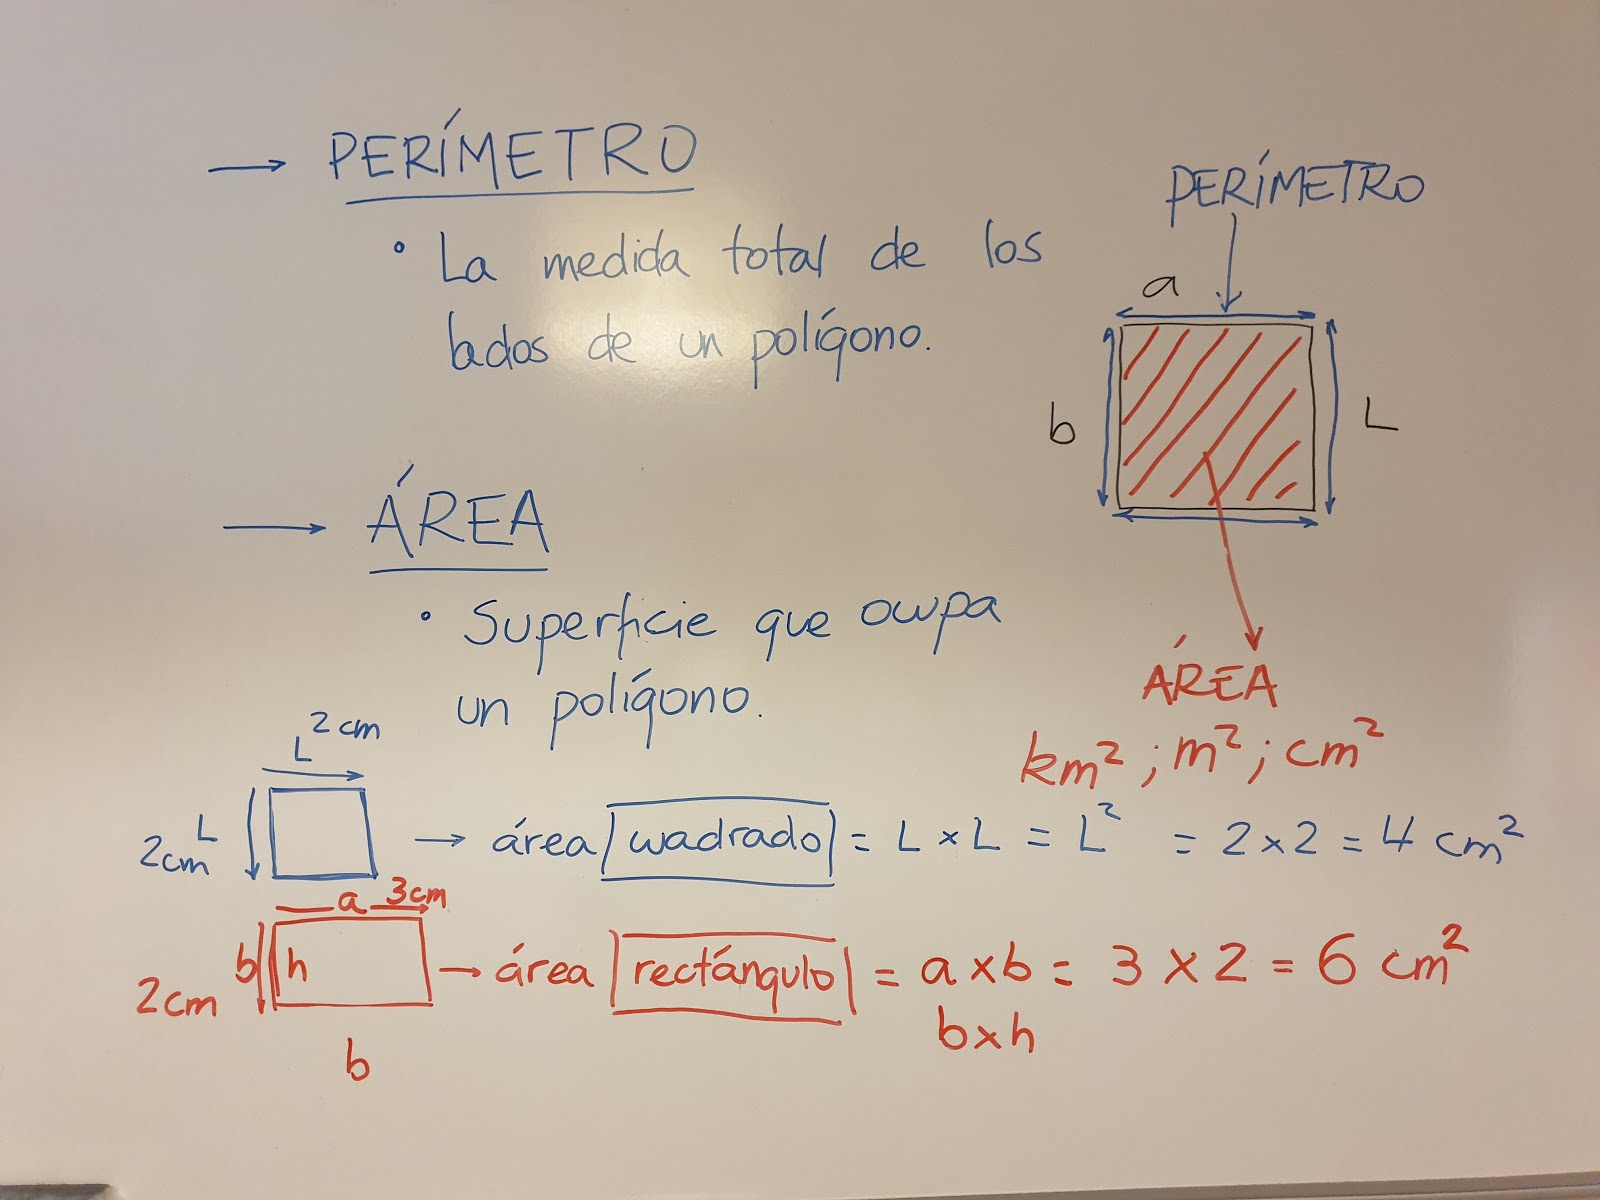 → PERÍMETRO
• La medida total de los
lados de un polígono.
PERÍMETRO
a
b
L
→ ÁREA
• Superficie que ocupa
un polígono.
ÁREA
km² ; m² ; cm²
L 2 cm
L
2cm
→ área cuadrado = L × L = L² = 2 × 2 = 4 cm²
a 3cm
b h
2cm
b
→ área rectángulo = a × b = 3 × 2 = 6 cm²
b×h